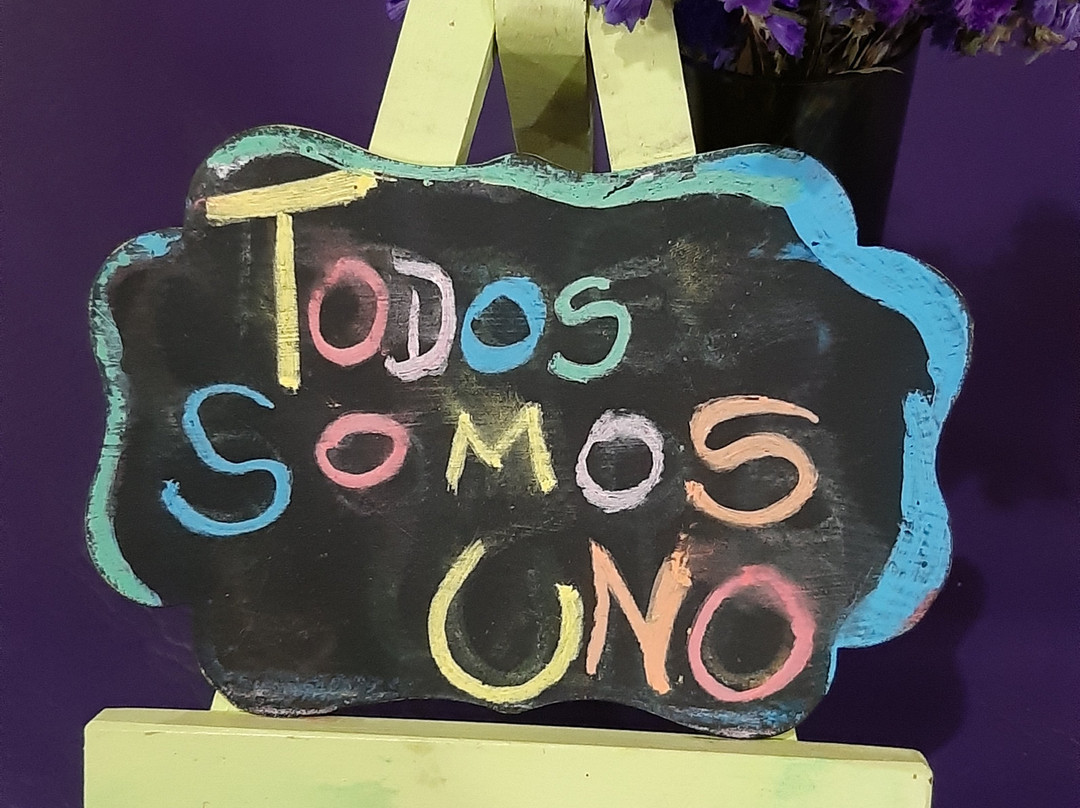 TODOS
SOMOS
UNO